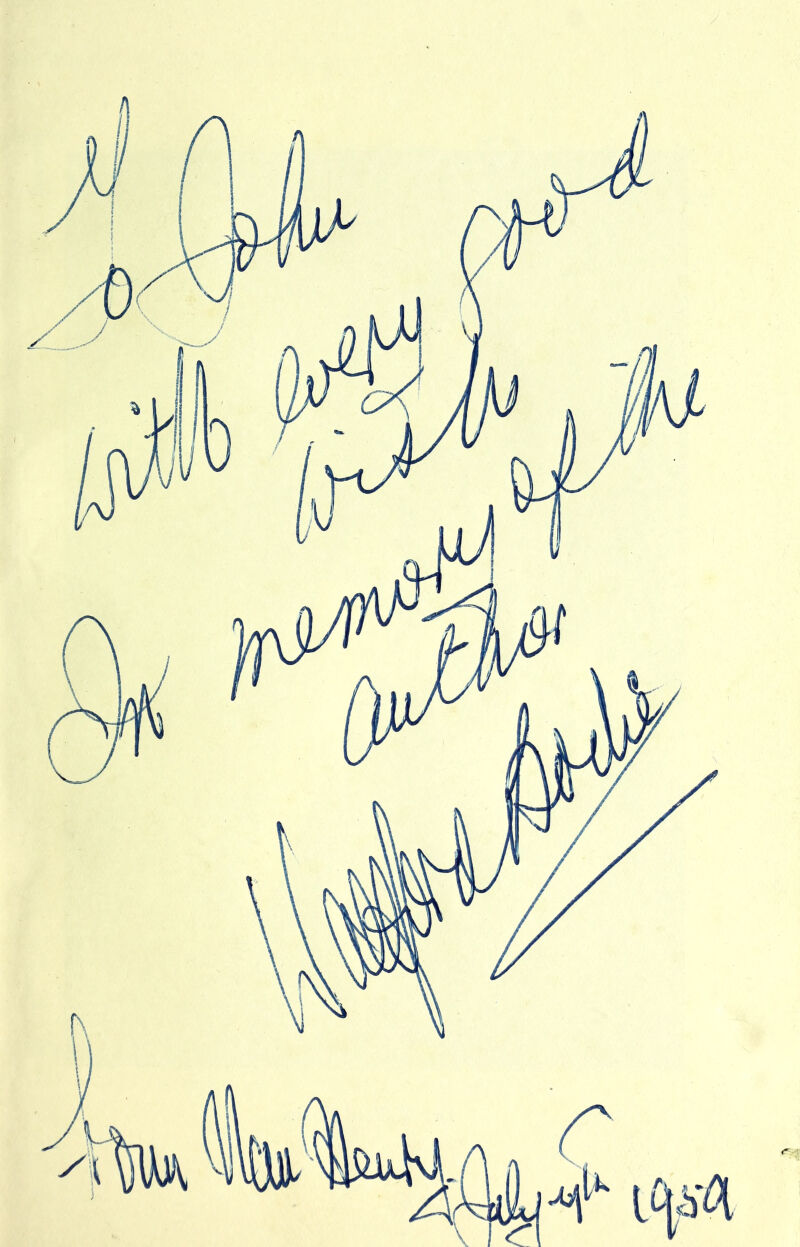 To John
with every good
wish
In memory of the
author
Walford Bodie
from Van Henry.
July 1959